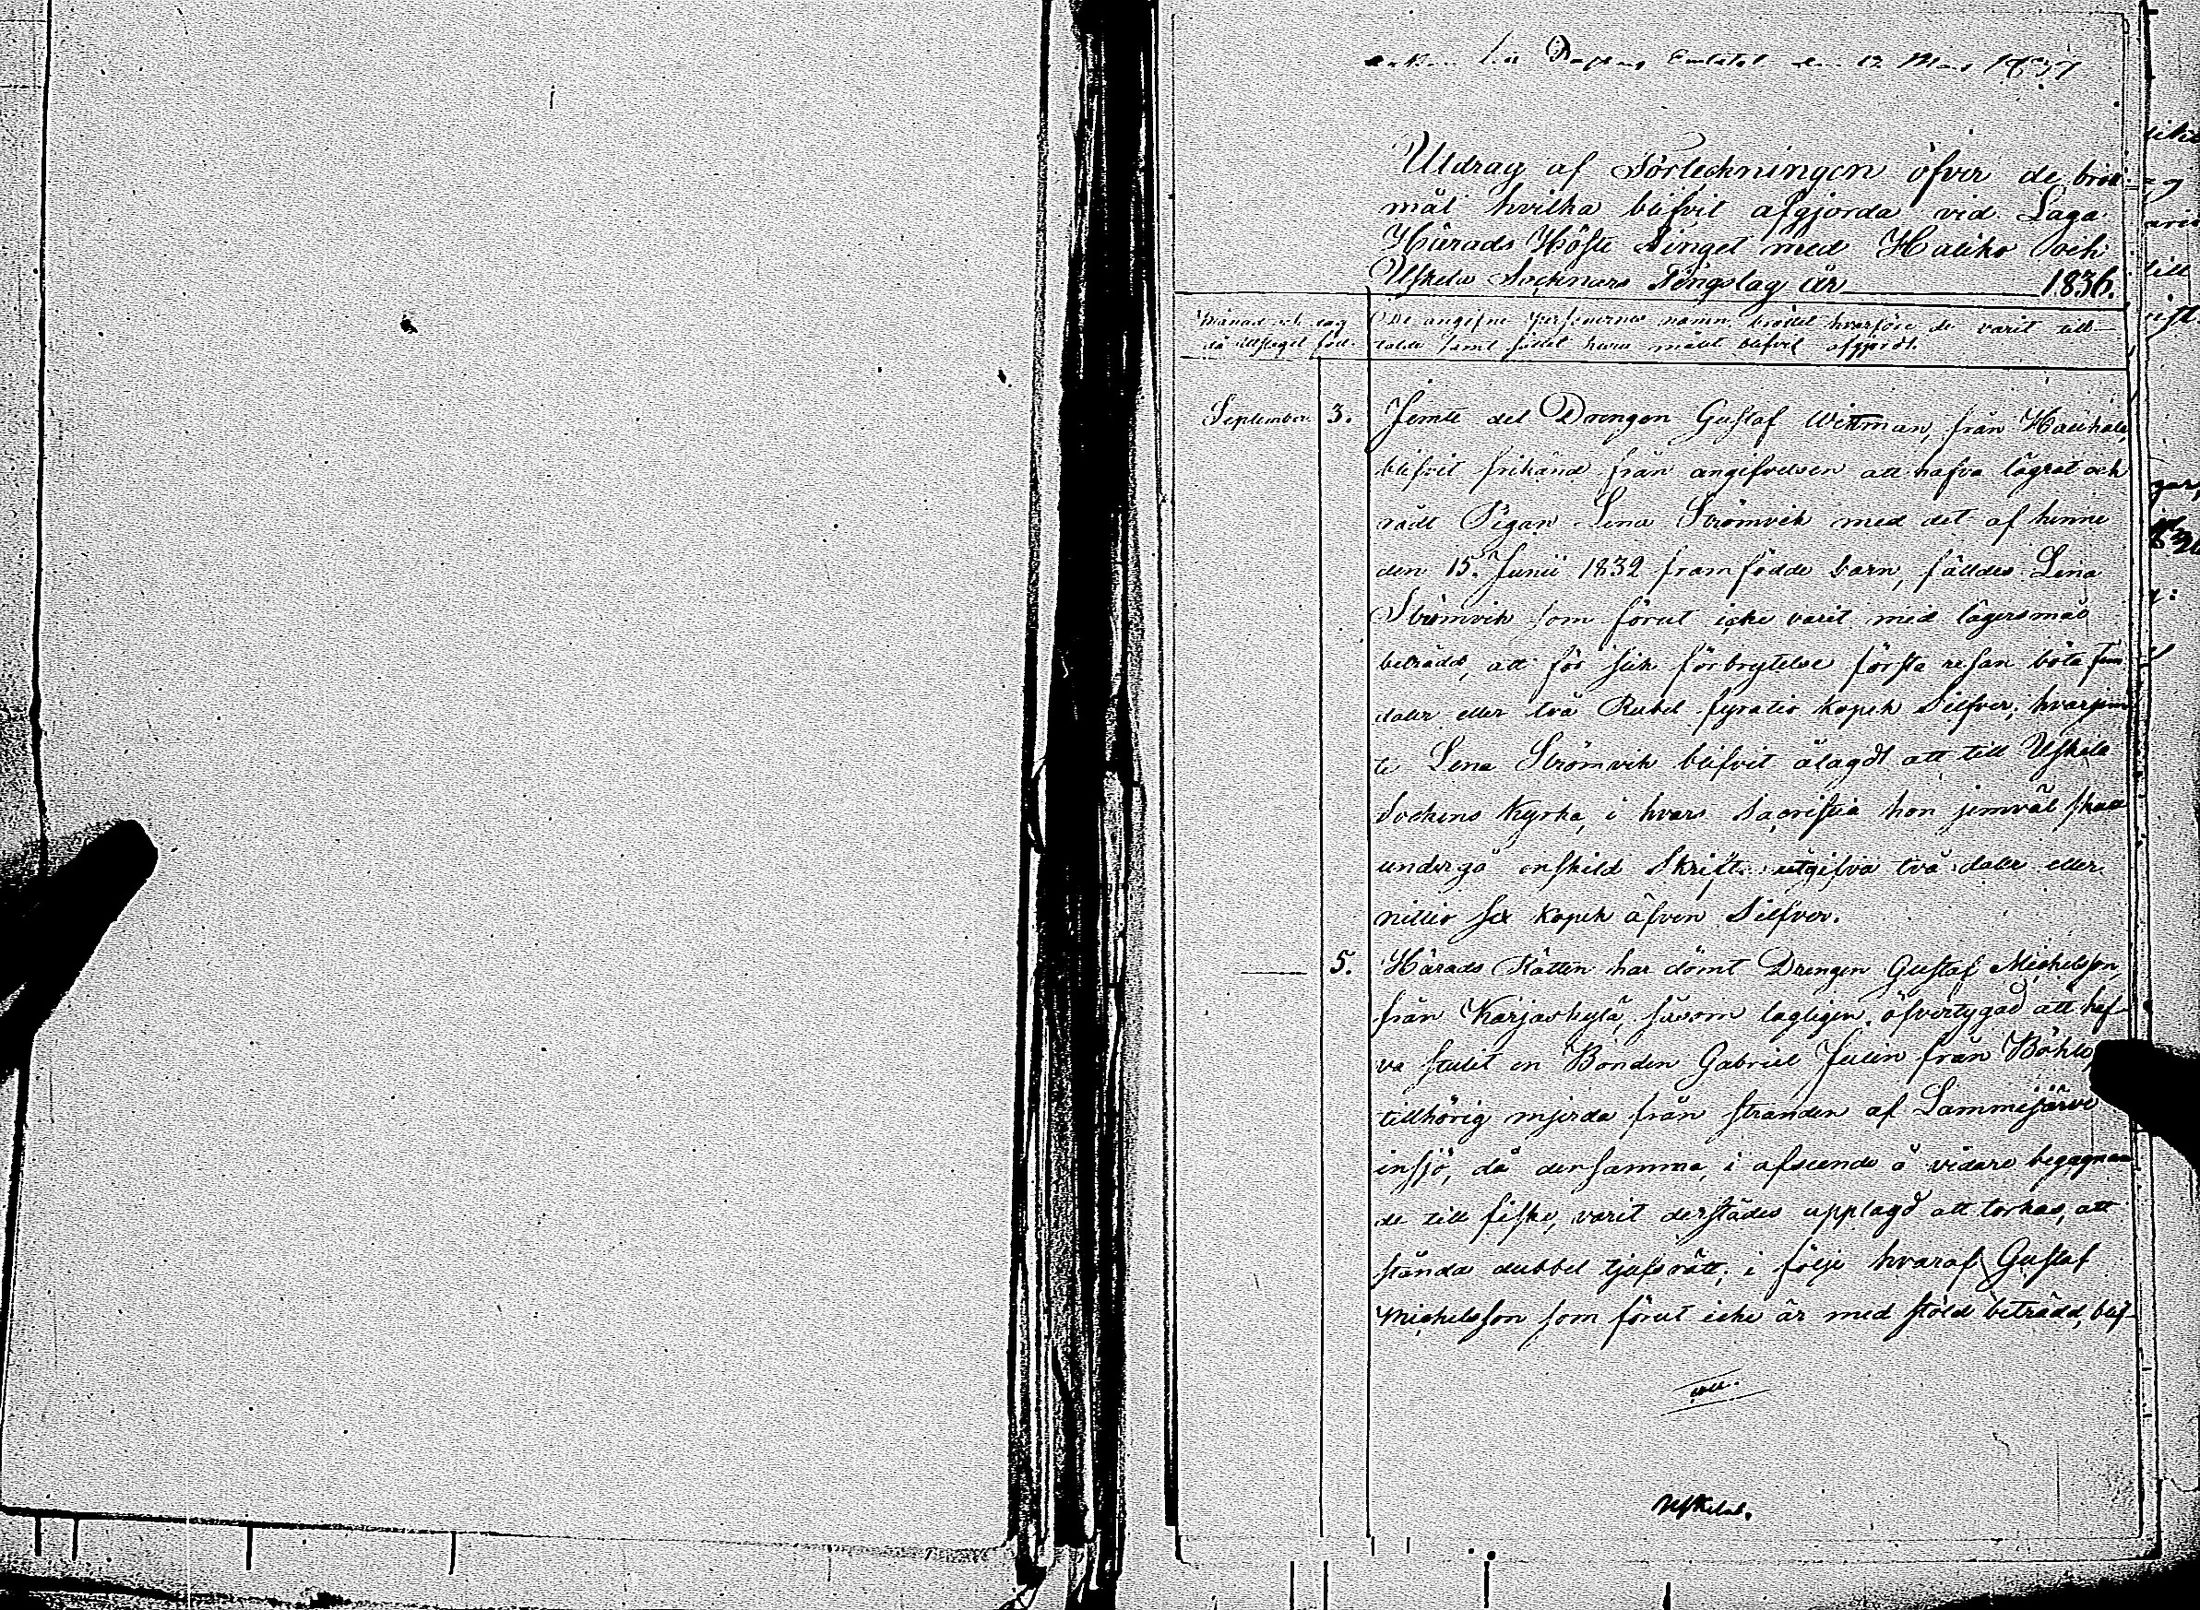 den 12 Maj 1837
Utdrag af Förteckningen öfver de brott
mål hvilka blifvit afgjorda vid Laga
Härads Höste Tinget med Haliko och
Uskela Socknars Tingslag år 1836.
Månad och dag De angifne personernes namn, brottet hvarföre de varit till-
då utslaget föll. talde samt sättet huru målet blifvit afgjordt.
September 3. Jemte det Drengen Gustaf Wittman, från
blifvit frikänd från angifvelsen att hafva lägrat och
rådt Pigan Lena Strömvik med det af henne
den 15. Junii 1832 framfödde barn, fälldes Lena
Strömvik som förut icke varit med lägersmål
beträdd, att för slik förbrytelse första resan böta fem
daler eller två Rubel fyratio kopek Silfver; hvarjem
te Lena Strömvik blifvit ålagdt att till Uskela
Sockens Kyrka, i hvars Sacristia hon jemväl skall
undergå enskild Skrift, utgifva två daler eller
nittio sex kopek äfven Silfver.
5. Härads Rätten har dömt Drengen Gustaf Michelsson,
från Karjaskylä, såsom lagligen öfvertygad att haf-
va stulit en Bonden Gabriel Julin från Böhle,
tillhörig mjerda från stranden af Lammijärvi
insjö, då densamma, i afseende å vidare begagnan
de till fiske, varit derstädes upplagd att torkas, att
stånda dubbel tjufsrätt; i följe hvaraf Gustaf
Michelsson som förut icke är med stöld beträdd, blif-
vit
Uskela.